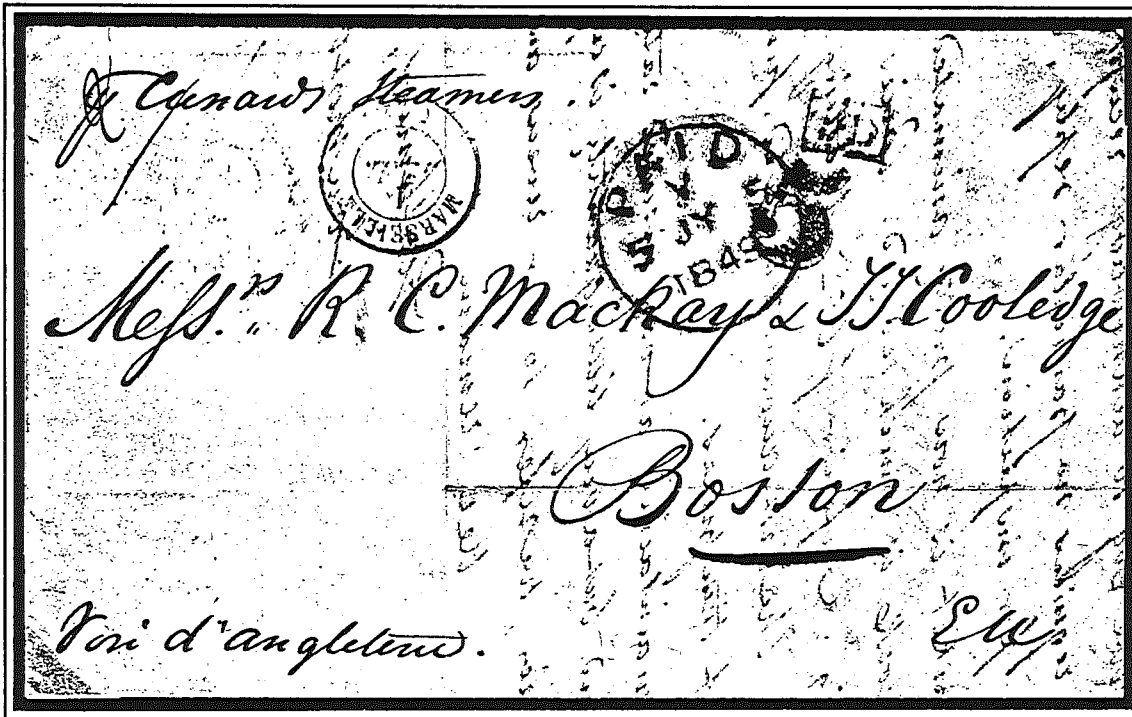 Cunards Steamers
MARSEILLE
PAID
JY
1849
Mess.rs R. C. Mackay & T J. Cooledge
Boston
Voie d'angleterre.